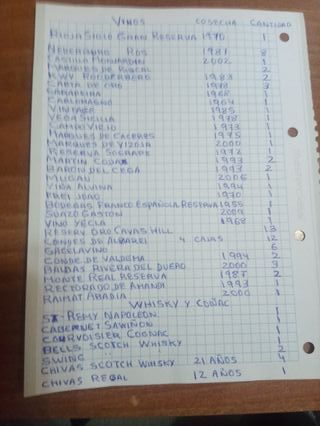 VINOS COSECHA CANTIDAD
RIOJA SIGLO GRAN RESERVA 1970 1
ROS 1987 8
CASTILLO MONJARDIN 2002 1
MARQUES DE RISCAL 2
KWV RODDERBERG 1983 2
CARTA DE ORO 1978 3
1968 1
CARLOMAGNO 1964 1
VINTAGE 1985 1
VEGA SICILIA 1978 1
CAMPO VIEJO 1973 1
MARQUES DE CACERES 1975 1
MARQUES DE VIZOJA 2000 1
RESERVA 1973 1
MARTIN CODAX 1993 2
BARON DEL CEGA 1993 2
MUGAN 2006 1
VIÑA ALVINA 1994 1
FREI JOAO 1970 1
BODEGAS FRANCO ESPAÑOLA RESERVA 1955 1
SUAZO GASTON 2009 1
VINO YECLA 1968 1
RESERV ORO CAVAS HILL 13
CONDES DE ALBAREI 4 CAJAS 12
6
CONDE DE VALDEMA 1994 2
RIVERA DEL DUERO 2000 3
MONTE REAL RESERVA 1987 2
RECTORADO DE AMANDI 1993 1
RAIMAT ABADIA 2000 1
WHISKY Y COÑAC
ST-REMY NAPOLEON 1
CABERNET SAWIÑON 1
COURVOISIER COGNAC 1
BELLS SCOTCH WHISKY 1
SWING 2
CHIVAS SCOTCH WHISKY 21 AÑOS 4
CHIVAS REGAL 12 AÑOS 1